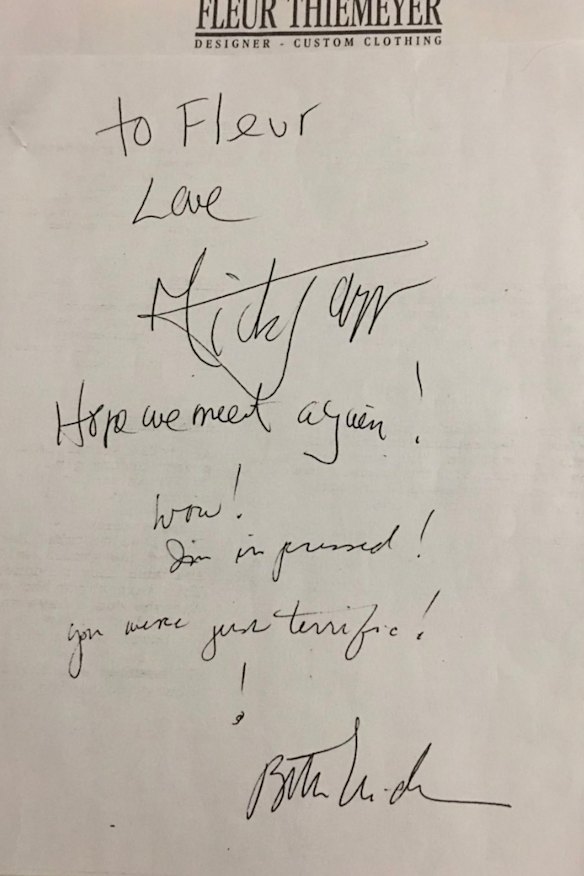 FLEUR THIEMEYER
DESIGNER - CUSTOM CLOTHING
to Fleur
Love
Mick
Hope we meet again!
Wow!
I'm impressed!
you were just terrific!
!